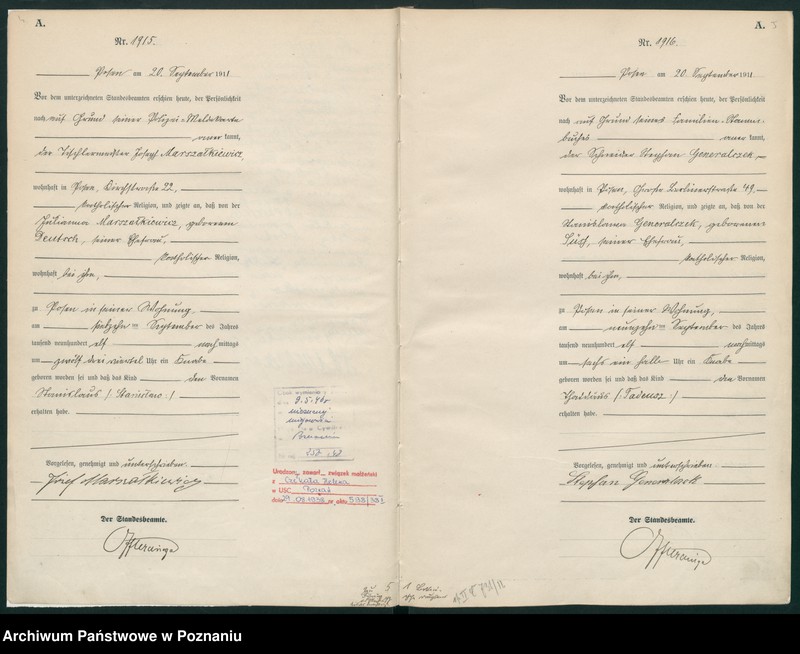 A.
Nr. 1915.
Posen am 20. September 1911
Vor dem unterzeichneten Standesbeamten erschien heute, der Persönlichkeit
nach auf Grund seiner Polizei-Meldekarte
aner kannt,
der Tischlermeister Joseph Marszałkiewicz
wohnhaft in Posen, 22,
katholischer Religion, und zeigte an, daß von der
Julianna Marszałkiewicz, geborenen
Deutsch, seiner Ehefrau,
katholischer Religion,
wohnhaft bei ihm,
zu Posen in seiner Wohnung,
am siebzehn ten September des Jahres
tausend neunhundert elf nach mittags
um zwölf drei viertel Uhr ein Knabe
geboren worden sei und daß das Kind den Vornamen
Stanislaus (: Stanisław :)
erhalten habe.
Vorgelesen, genehmigt und unterschrieben.
Józef Marszałkiewicz
Der Standesbeamte.
9.5.
Urodzony zawarł związek małżeński
z
w USC
dnia 29.08.1938 nr aktu 598/38
A.
Nr. 1916.
Posen am 20. September 1911
Vor dem unterzeichneten Standesbeamten erschien heute, der Persönlichkeit
nach auf Grund seines Familien-Stamm-
buches aner kannt,
der Schneider Stephan Generalczek
wohnhaft in Posen, Große Berlinerstraße 49,
katholischer Religion, und zeigte an, daß von der
Stanislawa Generalczek, geborenen
seiner Ehefrau,
katholischer Religion,
wohnhaft bei ihm,
zu Posen in seiner Wohnung,
am neunzehn ten September des Jahres
tausend neunhundert elf nach mittags
um sechs ein halb Uhr ein Knabe
geboren worden sei und daß das Kind den Vornamen
Thaddäus (: Tadeusz :)
erhalten habe.
Vorgelesen, genehmigt und unterschrieben.
Stephan
Der Standesbeamte.
Archiwum Państwowe w Poznaniu